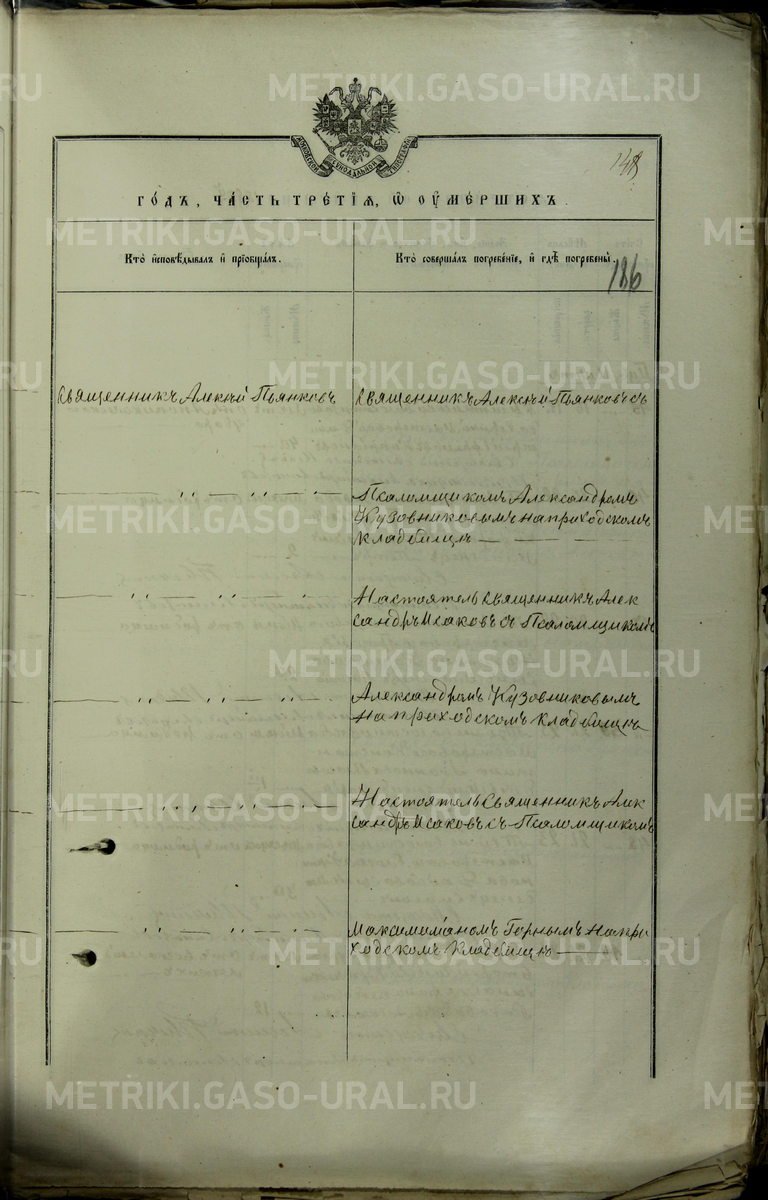 METRIKI.GASO-URAL.RU
148
ГО́ДЪ, ЧА́СТЬ ТРЕ́ТІѦ, Ѡ ОУ҆МЕ́РШИХЪ.
Кто̀ и҆сповѣ́дывалъ и҆ пріѡбща́лъ.
Кто̀ соверша́лъ погребе́ніе, и҆ гдѣ̀ погребены̀.
186
Священникъ Алексѣй Пьянковъ
Священникъ Алексѣй Пьянковъ съ
— ,, — ,, — ,,
Псаломщикомъ Александромъ
Кузовниковымъ на приходскомъ
кладбищѣ — — —
— ,, — ,, —
Настоятель Священникъ Алек
сандръ Исаковъ съ Псаломщикомъ
— ,, — ,, — ,, —
Александромъ Кузовниковымъ
на приходскомъ кладбищѣ
— ,, — ,, — ,, —
Настоятель Священникъ Алек
сандръ Исаковъ съ Псаломщикомъ
— ,, — ,, — ,, —
Максимиліаномъ Горнымъ на при
ходскомъ кладбищѣ —